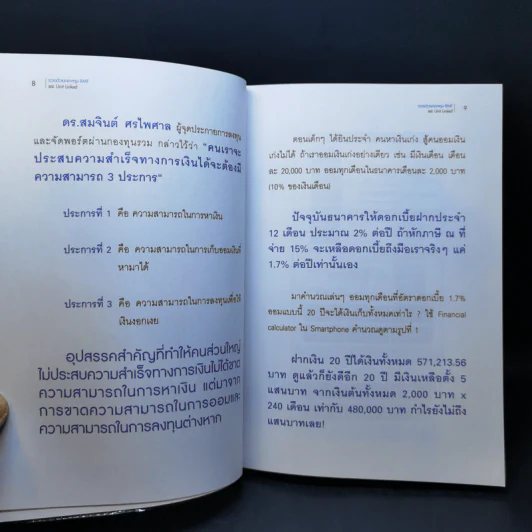 8
และ Unit Linked
ดร.สมจินต์ ศรไพศาล ผู้จุดประกายการลงทุน
และจัดพอร์ตผ่านกองทุนรวม กล่าวไว้ว่า "คนเราจะ
ประสบความสำเร็จทางการเงินได้จะต้องมี
ความสามารถ 3 ประการ"
ประการที่ 1 คือ ความสามารถในการหาเงิน
ประการที่ 2 คือ ความสามารถในการเก็บออมเงินที่
หามาได้
ประการที่ 3 คือ ความสามารถในการลงทุนเพื่อให้
เงินงอกเงย
อุปสรรคสำคัญที่ทำให้คนส่วนใหญ่
ไม่ประสบความสำเร็จทางการเงินไม่ได้ขาด
ความสามารถในการหาเงิน แต่มาจาก
การขาดความสามารถในการออมและ
ความสามารถในการลงทุนต่างหาก
และ Unit Linked
9
ตอนเด็กๆ ได้ยินประจำ คนหาเงินเก่ง สู้คนออมเงิน
เก่งไม่ได้ ถ้าเราออมเงินเก่งอย่างเดียว เช่น มีเงินเดือน เดือน
ละ 20,000 บาท ออมทุกเดือนในธนาคารเดือนละ 2,000 บาท
(10% ของเงินเดือน)
ปัจจุบันธนาคารให้ดอกเบี้ยฝากประจำ
12 เดือน ประมาณ 2% ต่อปี ถ้าหักภาษี ณ ที่
จ่าย 15% จะเหลือดอกเบี้ยถึงมือเราจริงๆ แค่
1.7% ต่อปีเท่านั้นเอง
มาคำนวณเล่นๆ ออมทุกเดือนที่อัตราดอกเบี้ย 1.7%
ออมแบบนี้ 20 ปีจะได้เงินเก็บทั้งหมดเท่าไร ? ใช้ Financial
calculator ใน Smartphone คำนวณดูตามรูปที่ 1
ฝากเงิน 20 ปีได้เงินทั้งหมด 571,213.56
บาท ดูแล้วก็ยังดีอีก 20 ปี มีเงินเหลือตั้ง 5
แสนบาท จากเงินต้นทั้งหมด 2,000 บาท x
240 เดือน เท่ากับ 480,000 บาท กำไรยังไม่ถึง
แสนบาทเลย!